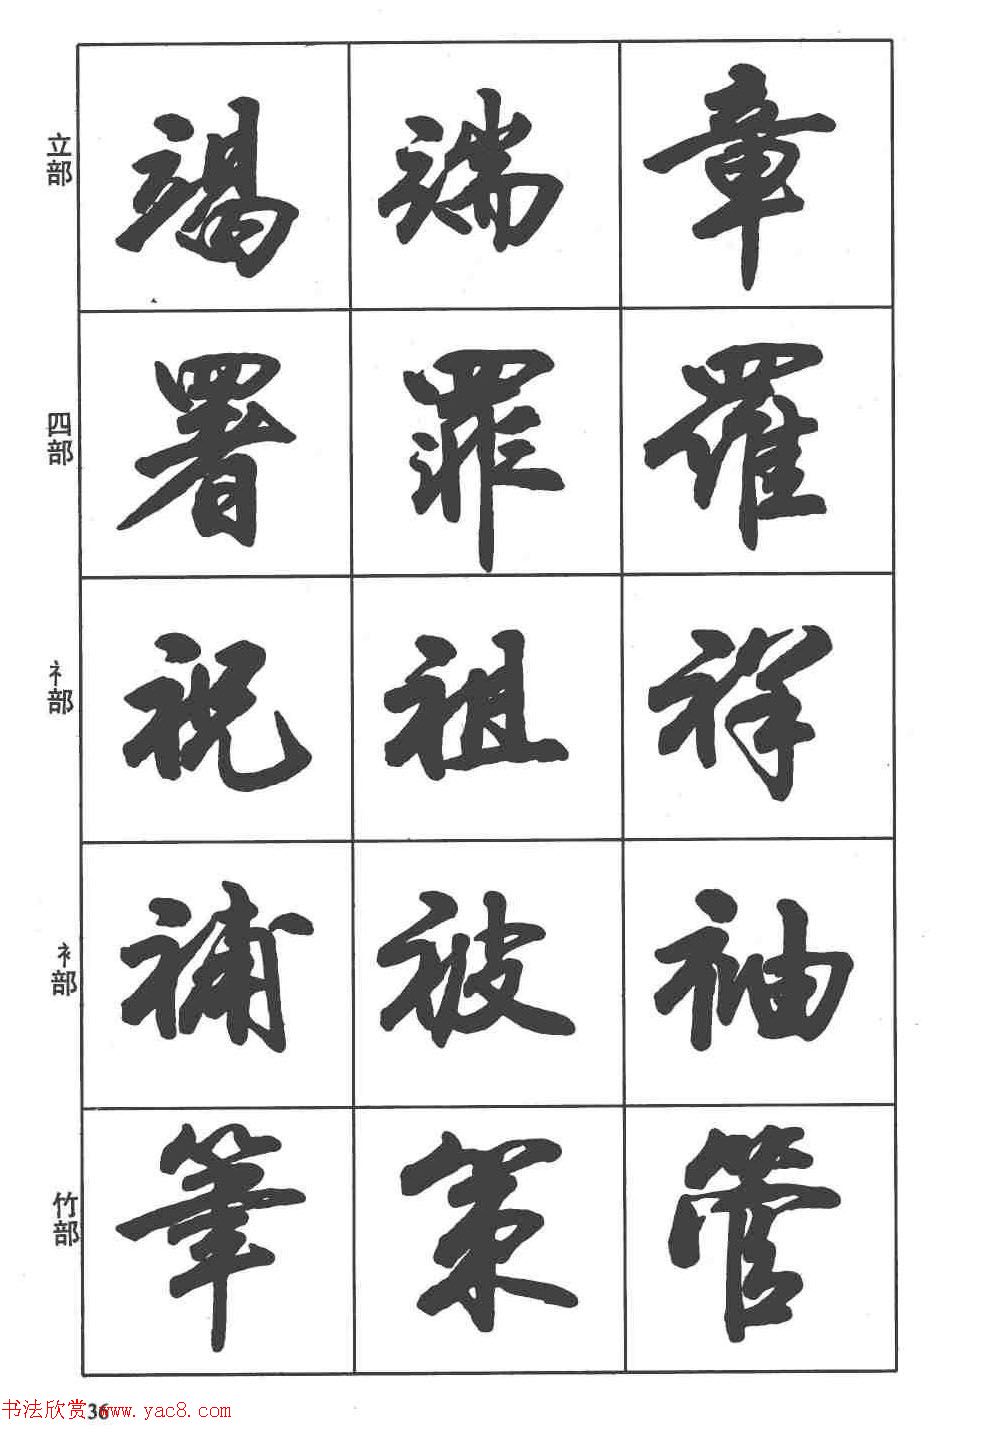 立部 竭 端 章
四部 署 罪 羅
礻部 祝 祖 祥
衤部 補 被 袖
竹部 筆 策 管
书法欣赏36www.yac8.com